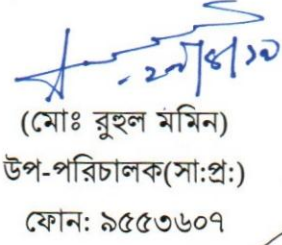 (মোঃ রুহুল মমিন)
উপ-পরিচালক(সা:প্র:)
ফোন: ৯৫৫৩৬০৭